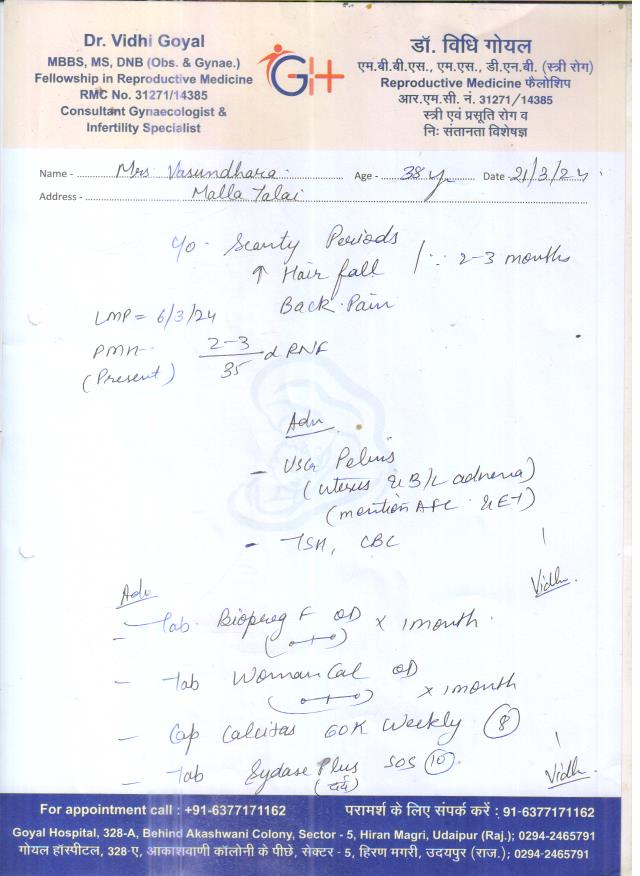 Dr. Vidhi Goyal
MBBS, MS, DNB (Obs. & Gynae.)
Fellowship in Reproductive Medicine
RMC No. 31271/14385
Consultant Gynaecologist &
Infertility Specialist
GH
डॉ. विधि गोयल
एम.बी.बी.एस., एम.एस., डी.एन.बी. (स्त्री रोग)
Reproductive Medicine फैलोशिप
आर.एम.सी. नं. 31271/14385
स्त्री एवं प्रसूति रोग व
निः संतानता विशेषज्ञ
Name - Mrs Vasundhara. Age - 38 y Date - 21/3/24
Address - Malla Talai
c/o - Scanty Periods
↑ Hair fall / ∵ 2-3 months
Back Pain
LMP = 6/3/24
PMH - 2-3/35 d RNF
(Present)
Adv
- USG Pelvis
(uterus & B/L adnexa)
(mention AFC & ET)
- TSH, CBC
Vidhi
Adv
- Tab. Biopreg F OD x 1 month.
(o-+-o)
- Tab Woman Cal OD
(o-+-o) x 1 month
- Cap Calcitas 60K Weekly (8)
- Tab Sydase Plus SOS (10)
(दर्द)
Vidhi.
For appointment call : +91-6377171162 परामर्श के लिए संपर्क करें : 91-6377171162
Goyal Hospital, 328-A, Behind Akashwani Colony, Sector - 5, Hiran Magri, Udaipur (Raj.); 0294-2465791
गोयल हॉस्पीटल, 328-ए, आकाशवाणी कॉलोनी के पीछे, सेक्टर - 5, हिरण मगरी, उदयपुर (राज.); 0294-2465791